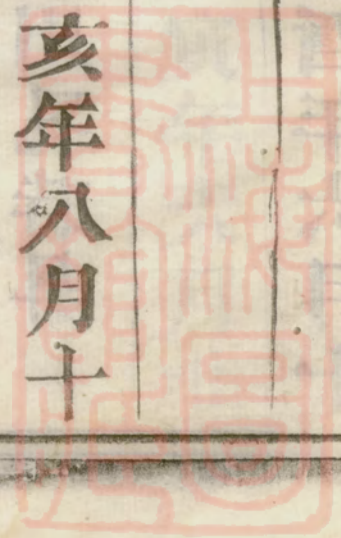 亥年八月十